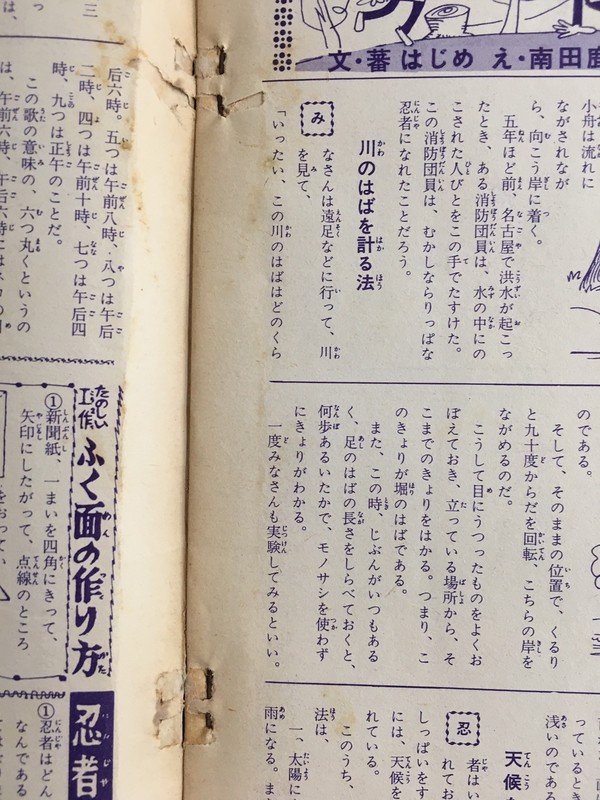 文・蕃はじめ え・南田
小舟は流れに
ながされなが
ら、向こう岸に着く。
五年ほど前、名古屋で洪水が起こっ
たとき、ある消防団員は、水の中にの
こされた人びとをこの手でたすけた。
この消防団員は、むかしならりっぱな
忍者になれたことだろう。
川のはばを計る法
みなさんは遠足などに行って、川
を見て、
「いったい、この川のはばはどのくら
のである。
そして、そのままの位置で、くるり
と九十度からだを回転、こちらの岸を
ながめるのだ。
こうして目にうつったものをよくお
ぼえておき、立っている場所から、そ
こまでのきょりをはかる。つまり、こ
のきょりが堀のはばである。
また、この時、じぶんがいつもある
く、足のはばの長さをしらべておくと、
何歩あるいたかで、モノサシを使わず
にきょりがわかる。
一度みなさんも実験してみるといい。
っているとき
浅いのである
天候
忍者はい
れてお
しっぱいをす
には、天候を
れている。
このうち、
法は、
一、太陽に
雨になる。また
三
っ
は、
后六時。五つは午前八時、八つは午后
二時、四つは午前十時、七つは午后四
時、九つは正午のことだ。
この歌の意味の、六つ丸くというの
は、午前六時、午后六時には
たのしい工作
ふく面の作り方
①新聞紙、一まいを四角にきって、
矢印にしたがって、点線のところ
をおって、
忍者
①忍者はどん
なんである